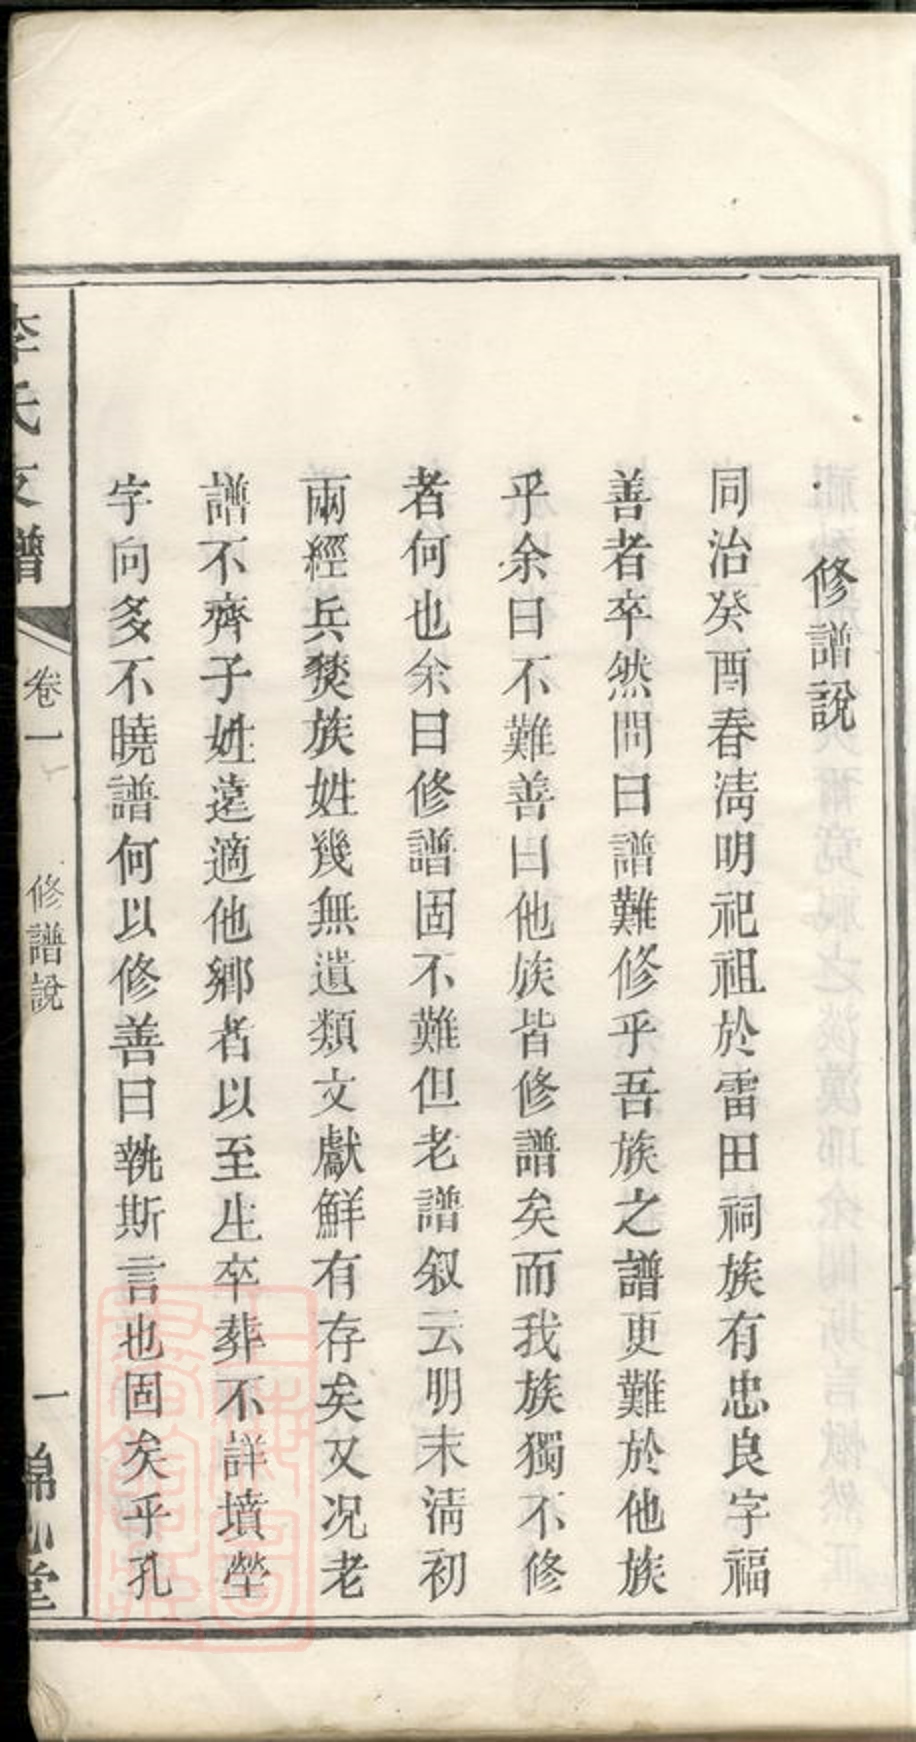 修譜說
同治癸酉春淸明祀祖於雷田祠族有忠良字福
善者卒然問曰譜難修乎吾族之譜更難於他族
乎余曰不難善曰他族皆修譜矣而我族獨不修
者何也余曰修譜固不難但老譜叙云明末淸初
兩經兵燹族姓幾無遺類文獻鮮有存矣又况老
譜不齊子姓遠適他鄕者以至生卒葬不詳墳塋
字向多不曉譜何以修善曰執斯言也固矣乎孔
李氏支譜
卷一
修譜說
一
堂